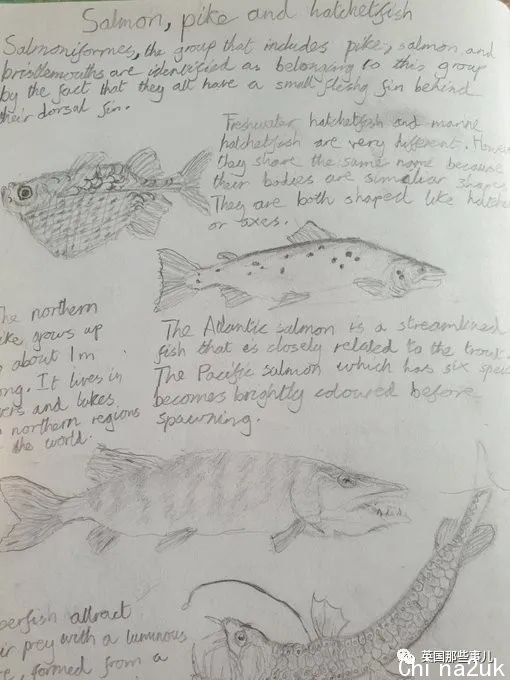 Salmon, pike and hatchetfish
Salmoniformes, the group that includes pike, salmon and
bristlemouths are identified as belonging to this group
by the fact that they all have a small fleshy fin behind
their dorsal fin.
Freshwater hatchetfish and marine
hatchetfish are very different. However
they share the same name because
their bodies are simaliar shapes
They are both shaped like
or axes.
The northern
pike grows up
to about 1m
long. It lives in
and lakes
northern regions
the world.
The Atlantic salmon is a streamlined
fish that is closely related to the trout.
The Pacific salmon which has six
becomes brightly coloured before
spawning.
attract
prey with a luminous
formed from a
英国那些事儿
Chi na2uk